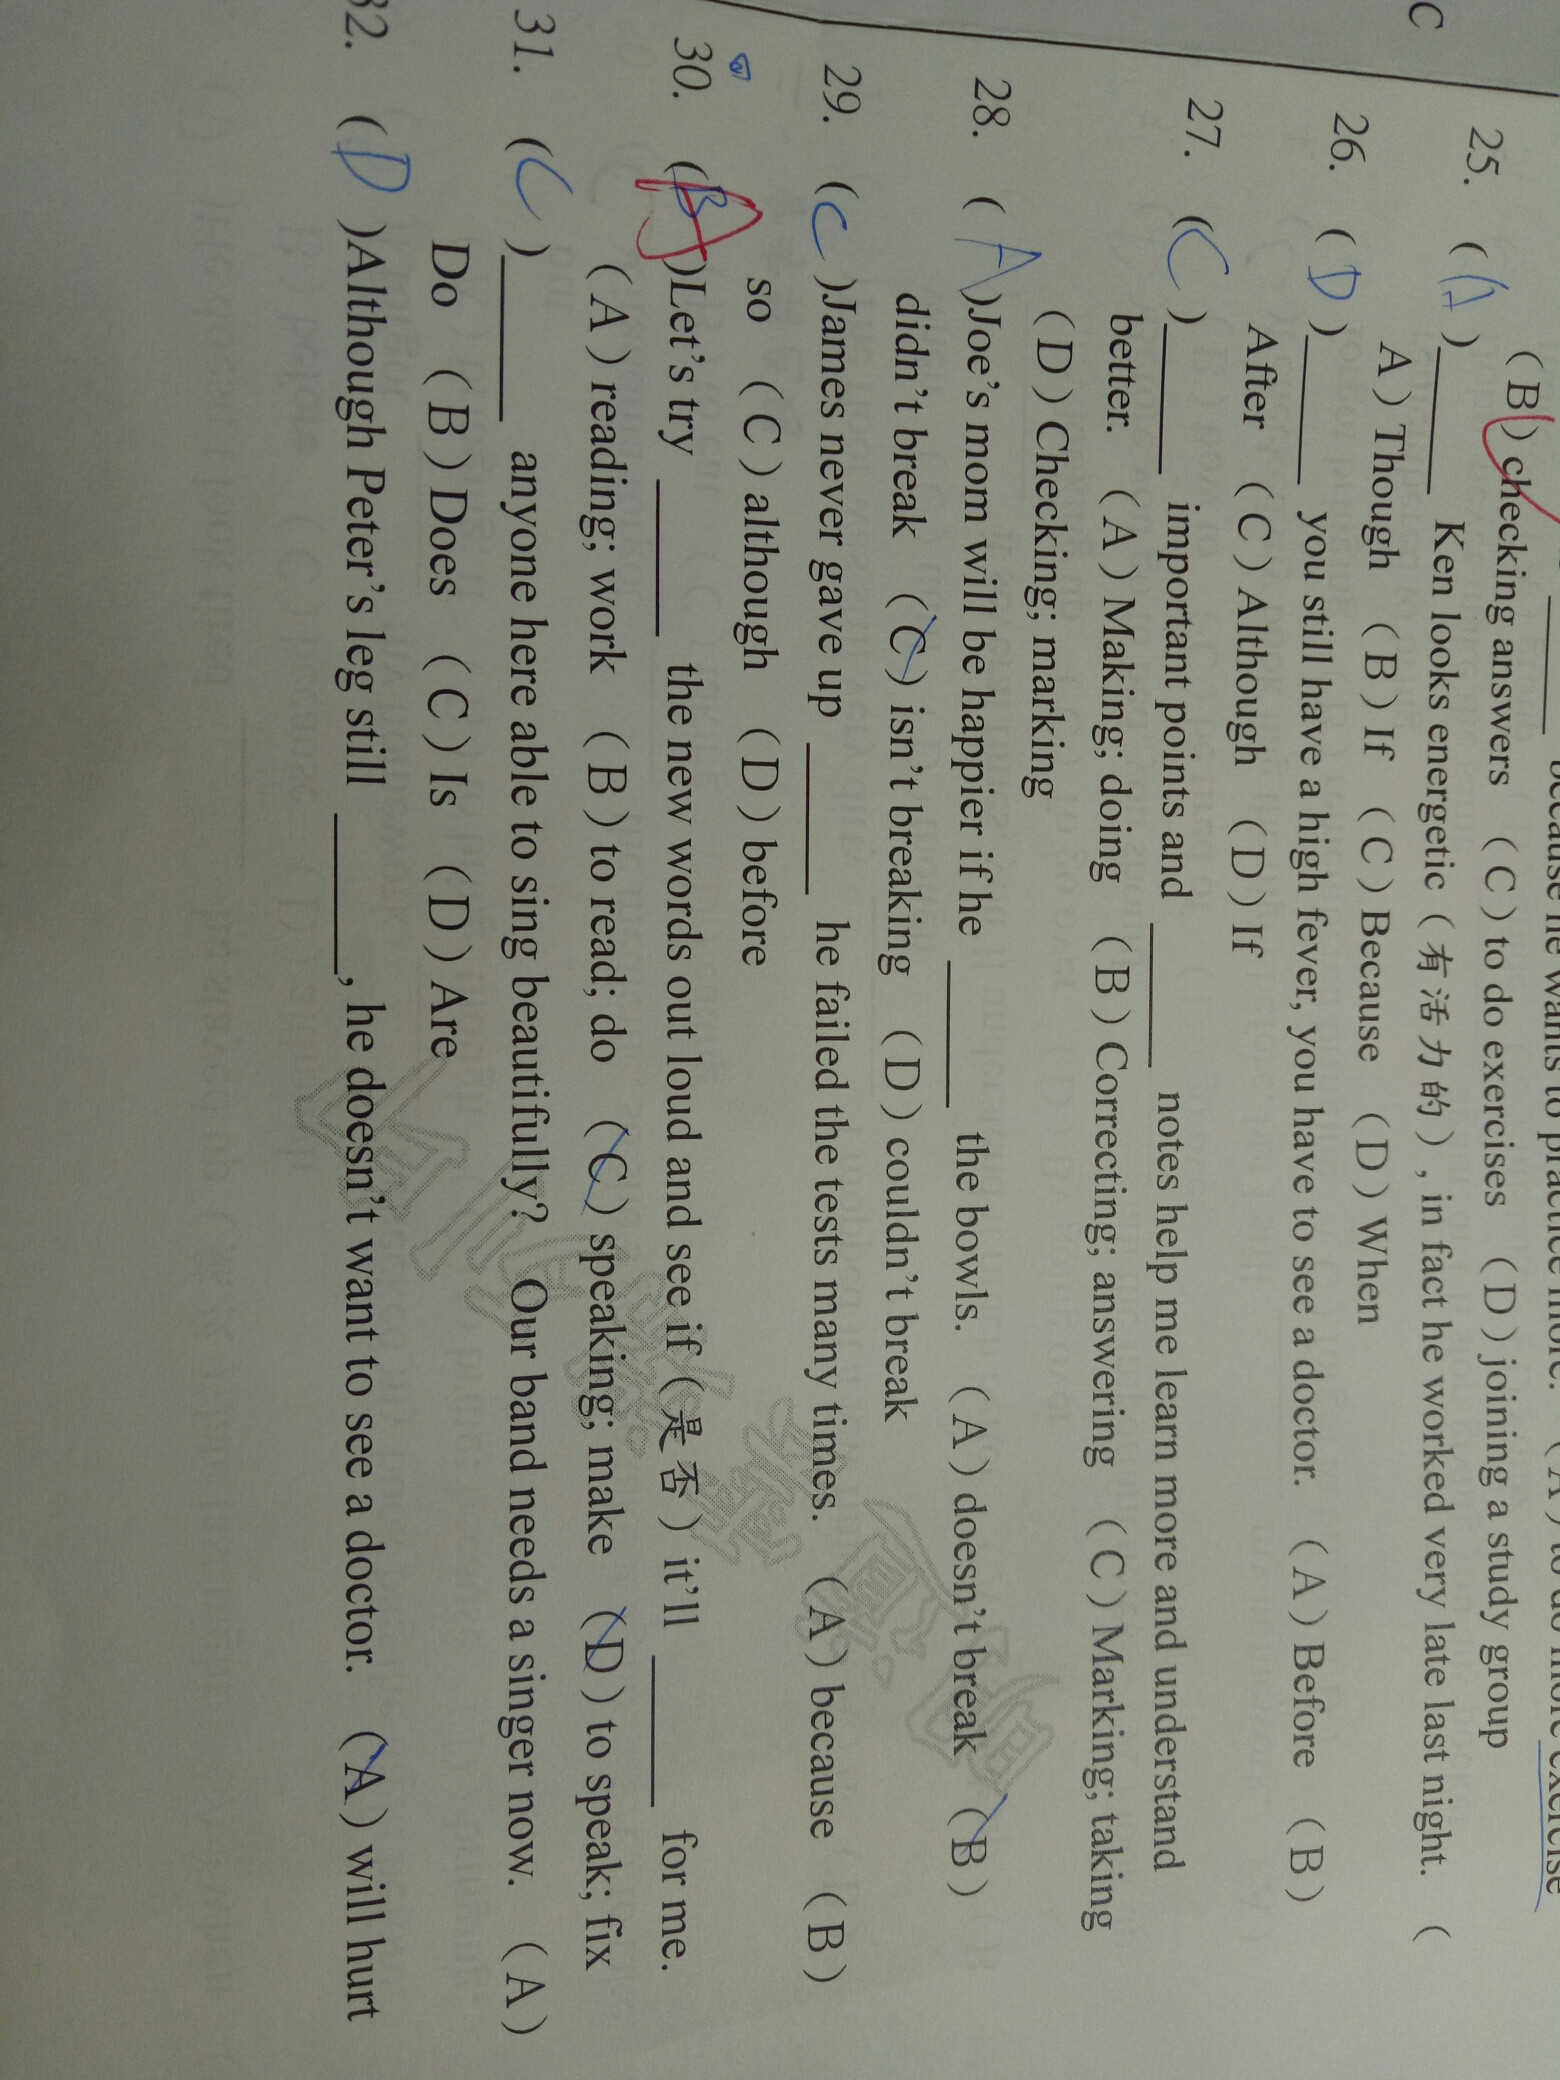 C
because he wants to practice more. (A) to do more exercise
(B) checking answers (C) to do exercises (D) joining a study group
25. (A)______ Ken looks energetic (有活力的), in fact he worked very late last night. (
A) Though (B) If (C) Because (D) When
26. (D)______ you still have a high fever, you have to see a doctor. (A) Before (B)
After (C) Although (D) If
27. (C)______ important points and ______ notes help me learn more and understand
better. (A) Making; doing (B) Correcting; answering (C) Marking; taking
(D) Checking; marking
28. (A)Joe's mom will be happier if he ______ the bowls. (A) doesn't break (B)
didn't break (C) isn't breaking (D) couldn't break
29. (C)James never gave up ______ he failed the tests many times. (A) because (B)
so (C) although (D) before
30. (B A)Let's try ______ the new words out loud and see if (是否) it'll ______ for me.
(A) reading; work (B) to read; do (C) speaking; make (D) to speak; fix
31. (C)______ anyone here able to sing beautifully? Our band needs a singer now. (A)
Do (B) Does (C) Is (D) Are
32. (D)Although Peter's leg still ______, he doesn't want to see a doctor. (A) will hurt